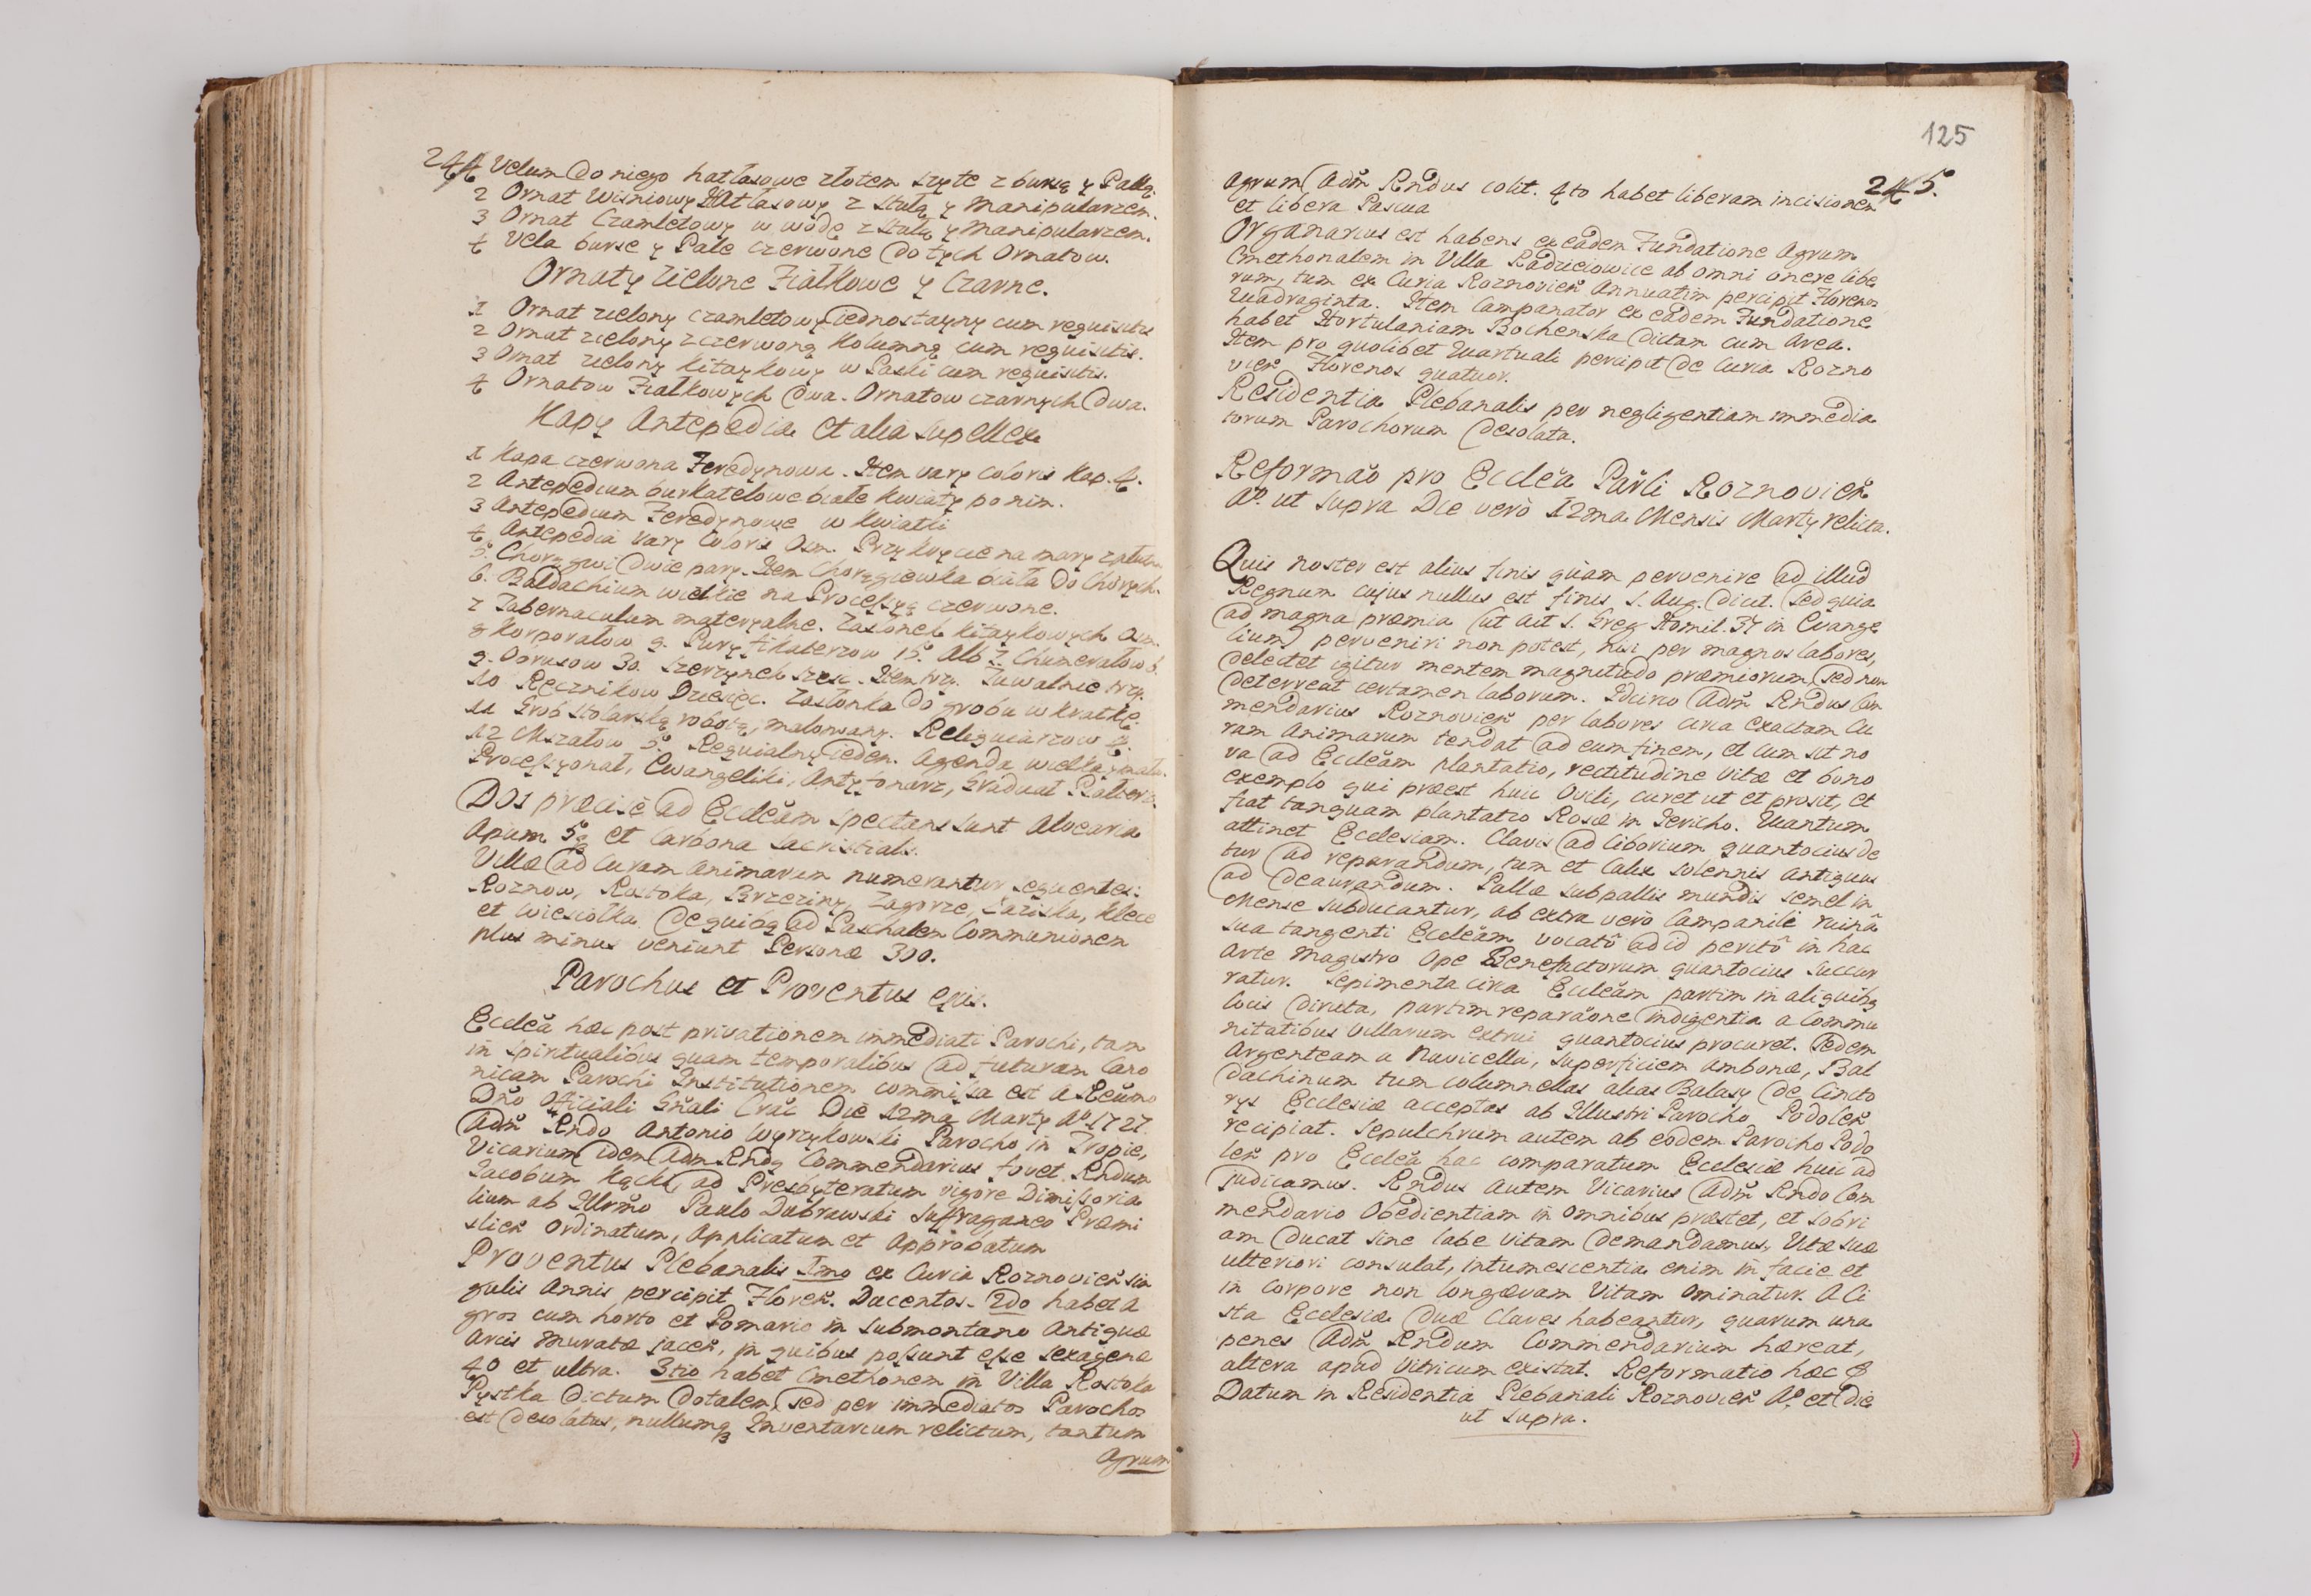 244
Velum do niego hatłasowe złotem szyte z bursą y Pallą.
2 Ornat Wisniowy Hatłasowy z stułą y Manipularzem.
3 Ornat Czamletowy w wodę z stułą y Manipularzem.
4 Vela burse y Pale czerwone do tych Ornatow.
Ornaty Zielone Fiałkowe y Czarne.
1 Ornat zielony czamletowy iednostayny cum requisitis
2 Ornat zielony z czerwoną kolumną cum requisitis.
3 Ornat zielony kitaykowy w Paski cum requisitis.
4 Ornatow Fiałkowych dwa. Ornatow czarnych dwa.
Kapy Antepedia et alia supellex
1 Kapa czerwona Feredynowa. Item vary coloris Kap. 4.
2 Antepedium burkatelowe białe kwiaty po nim.
3 Antepedium Feredynowe w kwiatki
4 Antepedia vary Coloris Osm. Przykrycie na mary
5. Chorągwi dwie pary. Item Chorągiewka biała do Chorych.
6. Baldachium wielkie na Processyą czerwone.
7 Tabernaculum materyalne. Zasłonek kitaykowych Osm.
8 Korporałow 9. Puryfikaterzow 15. Alb 7. Humerałow 6.
9. Obrusow 30. Szerzynek szesc. Item trzy. Tuwalnie trzy.
10 Ręcznikow Dziesięc. Zasłonka do grobu w kratkę.
11 Grob stolarską robotą, malowany. Reliquiarzow 2.
12 Mszałow 5. Requialny ieden. Agenda wielka y mała.
Processyonał, Ewangeliki, Antyfonarz, Graduał Psałterz.
DOS præcisè ad Ecclẽam spectans sunt Alvearia
Apum 58 et Carbona Sacristialis.
Villæ ad Curam Animarum numerantur sequentes:
Roznow, Rostoka, Brzeziny, Zagorze, Łaziska, Klecie
et Wiesiołka de quibq ad Paschalem Communionem
plus minus veniunt Personæ 300.
Parochus et Proventus ejus.
Ecclẽa hæc post privationem immediati Parochi, tam
in spiritualibus quam temporalibus ad futuram Cano
nicam Parochi Institutionem commissa est a Rẽũmo
Dño Officiali Gñali Crac̃ Die 12ma Marty Aº 1727.
Adm̃ Rndo Antonio Wyrzykowski Parocho in Tropie,
Vicarium idem Adm Rndq Commendarius fovet Rndum
Iacobum Kącki, ad Presbyteratum vigore Dimissoria
lium ab Illrm̃o Paulo Dubrawski Suffraganeo Præmi
slieñ Ordinatum, Applicatum et Approbatum
Proventus Plebanalis 1mo ex Curia Roznovieñ sin
gulis Annis percipit Floreñ. Ducentos. 2do habet A
gros cum horto et Pomario in Submontano Antiquæ
Arcis Muratæ jaceñ, in quibus possunt esse sexagenæ
40 et ultra. 3tio habet Cmethonem in Villa Rostoka
Pystka dictum dotalem, sed per immediatos Parochos
est desolatus, nullumq Inventarium relictum, tantum
Agrum
125
245.
Agrum Adm̃ Rndus colit. 4to habet liberam incisionem
et libera Pascua
Organarius est habens ex eâdem Fundatione Agrum
Cmethonalem in Villa Radziciowice ab omni onere libe
rum, tum ex Curia Roznovieñ Annuatim percipit Florenos
Quadraginta. Item Campanator ex eâdem Fundatione
habet Hortulaniam Bochenska dictam cum Area.
Item pro quolibet Quartuali percipit de Curia Rozno
vieñ Florenos quatuor.
Residentia Plebanalis per negligentiam immedia
torum Parochorum desolata.
Reformaõ pro Ecclẽa Par̃li Roznovieñ
Aº ut supra Die verò 12ma Mensis Marty relicta.
Quis noster est alius finis quàm pervenire ad illud
Regnum cujus nullus est finis S. Aug. dicit. Sed quia
ad magna præmia (ut ait S. Greg Homil. 37 in Evange
lium) perveniri non potest, nisi per magnos labores,
delectet igitur mentem magnitudo præmiorum, sed non
deterreat certamen laborum. Idcirco Adm̃ Rndus Com
mendarius Roznovieñ per labores circa exactam Cu
ram Animarum tendat ad eum finem, et cum sit no
va ad Ecclẽam plantatio, rectitudine vitæ et bono
exemplo qui præest huic Ovili, curet ut et prosit, et
fiat tanquam plantatio Rosæ in Jericho. Quantum
attinet Ecclesiam. Clavis ad Ciborium quantocius de
tur ad reparandum, tum et Calix solennis antiquus
ad deaurandum. Pallæ subpallis mundis semel in
Mense subducantur, ab extra verò Campanili ruinâ
sua tangenti Ecclẽam vocatô ad id peritô in hac
Arte Magistro Ope Benefactorum quantocius succur
ratur. Sepimenta circa Ecclẽam partim in aliquibq
locis diruta, partim reparãone indigentia a Commu
nitatibus villarum extrui quantocius procuret. Pedem
Argenteam a Navicella, superficiem Ambonæ, Bal
dachinum tum columnellas alias Balasy de Cincto
rys Ecclesiæ acceptas ab Illustri Parocho Podoleñ
recipiat. Sepulchrum autem ab eodem Parocho Podo
leñ pro Ecclẽa hac comparatum Ecclesiæ huic ad
judicamus. Rndus autem Vicarius Adm̃ Rndo Com
mendario Obedientiam in omnibus præstet, et sobri
am ducat sine labe vitam demandamus, Vitæ suæ
ulteriori consulat, intumescentia enim in facie et
in corpore non longævam Vitam Ominatur. A Ci
sta Ecclesiæ duæ Claves habeantur, quarum una
penes Adm̃ Rndum Commendarium hæreat,
altera apud vitricum existat. Reformatio hæc
Datum in Residentia Plebanali Roznovieñ Aº et die
ut supra.